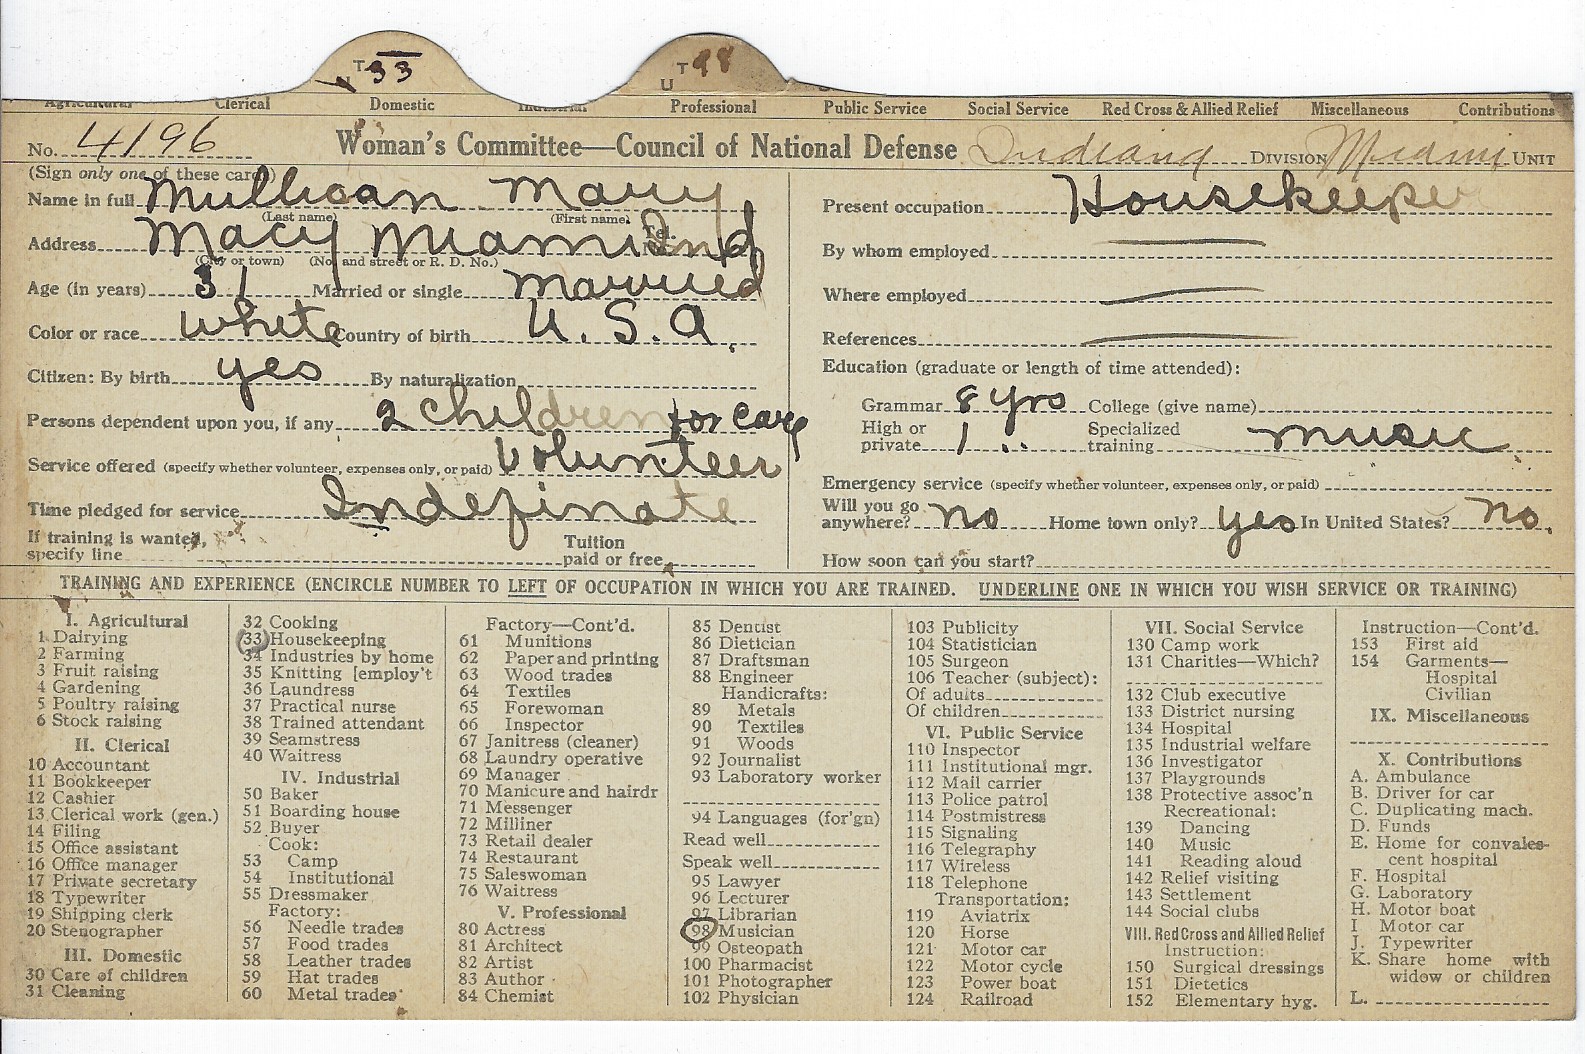 T 33
U T 98
Agricultural Clerical Domestic Industrial Professional Public Service Social Service Red Cross & Allied Relief Miscellaneous Contributions
No. 4196 Woman's Committee—Council of National Defense Indiana DIVISION Miami UNIT
(Sign only one of these cards)
Name in full Mullican Mary
(Last name) (First name)
Address Macy Miami Ind Tel. No.
(City or town) (No. and street or R. D. No.)
Age (in years) 31 Married or single married
Color or race white Country of birth U.S.A.
Citizen: By birth yes By naturalization
Persons dependent upon you, if any 2 children for care
Service offered (specify whether volunteer, expenses only, or paid) Volunteer
Time pledged for service Indefinate
If training is wanted, specify line Tuition paid or free
Present occupation Housekeeper
By whom employed
Where employed
References
Education (graduate or length of time attended):
Grammar 8 yrs College (give name)
High or private 1 .. Specialized training music
Emergency service (specify whether volunteer, expenses only, or paid)
Will you go anywhere? no Home town only? yes In United States? no.
How soon can you start?
TRAINING AND EXPERIENCE (ENCIRCLE NUMBER TO LEFT OF OCCUPATION IN WHICH YOU ARE TRAINED. UNDERLINE ONE IN WHICH YOU WISH SERVICE OR TRAINING)
I. Agricultural
1 Dairying
2 Farming
3 Fruit raising
4 Gardening
5 Poultry raising
6 Stock raising
II. Clerical
10 Accountant
11 Bookkeeper
12 Cashier
13 Clerical work (gen.)
14 Filing
15 Office assistant
16 Office manager
17 Private secretary
18 Typewriter
19 Shipping clerk
20 Stenographer
III. Domestic
30 Care of children
31 Cleaning
32 Cooking
33 Housekeeping
34 Industries by home
35 Knitting [employ't
36 Laundress
37 Practical nurse
38 Trained attendant
39 Seamstress
40 Waitress
IV. Industrial
50 Baker
51 Boarding house
52 Buyer
Cook:
53 Camp
54 Institutional
55 Dressmaker
Factory:
56 Needle trades
57 Food trades
58 Leather trades
59 Hat trades
60 Metal trades
Factory—Cont'd.
61 Munitions
62 Paper and printing
63 Wood trades
64 Textiles
65 Forewoman
66 Inspector
67 Janitress (cleaner)
68 Laundry operative
69 Manager
70 Manicure and hairdr
71 Messenger
72 Milliner
73 Retail dealer
74 Restaurant
75 Saleswoman
76 Waitress
V. Professional
80 Actress
81 Architect
82 Artist
83 Author
84 Chemist
85 Dentist
86 Dietician
87 Draftsman
88 Engineer
Handicrafts:
89 Metals
90 Textiles
91 Woods
92 Journalist
93 Laboratory worker
94 Languages (for'gn)
Read well
Speak well
95 Lawyer
96 Lecturer
97 Librarian
98 Musician
99 Osteopath
100 Pharmacist
101 Photographer
102 Physician
103 Publicity
104 Statistician
105 Surgeon
106 Teacher (subject):
Of adults
Of children
VI. Public Service
110 Inspector
111 Institutional mgr.
112 Mail carrier
113 Police patrol
114 Postmistress
115 Signaling
116 Telegraphy
117 Wireless
118 Telephone
Transportation:
119 Aviatrix
120 Horse
121 Motor car
122 Motor cycle
123 Power boat
124 Railroad
VII. Social Service
130 Camp work
131 Charities—Which?
132 Club executive
133 District nursing
134 Hospital
135 Industrial welfare
136 Investigator
137 Playgrounds
138 Protective assoc'n
Recreational:
139 Dancing
140 Music
141 Reading aloud
142 Relief visiting
143 Settlement
144 Social clubs
VIII. Red Cross and Allied Relief
Instruction:
150 Surgical dressings
151 Dietetics
152 Elementary hyg.
Instruction—Cont'd.
153 First aid
154 Garments—
Hospital
Civilian
IX. Miscellaneous
X. Contributions
A. Ambulance
B. Driver for car
C. Duplicating mach.
D. Funds
E. Home for convales-
cent hospital
F. Hospital
G. Laboratory
H. Motor boat
I Motor car
J. Typewriter
K. Share home with
widow or children
L.